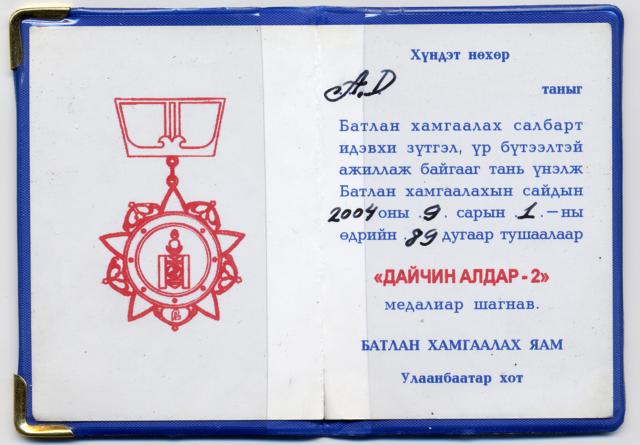 Хүндэт нөхөр
А.D таныг
Батлан хамгаалах салбарт
идэвхи зүтгэл, үр бүтээлтэй
ажиллаж байгааг тань үнэлж
Батлан хамгаалахын сайдын
2004 оны 9. сарын 1.–ны
өдрийн 89 дугаар тушаалаар
«ДАЙЧИН АЛДАР - 2»
медалиар шагнав.
БАТЛАН ХАМГААЛАХ ЯАМ
Улаанбаатар хот